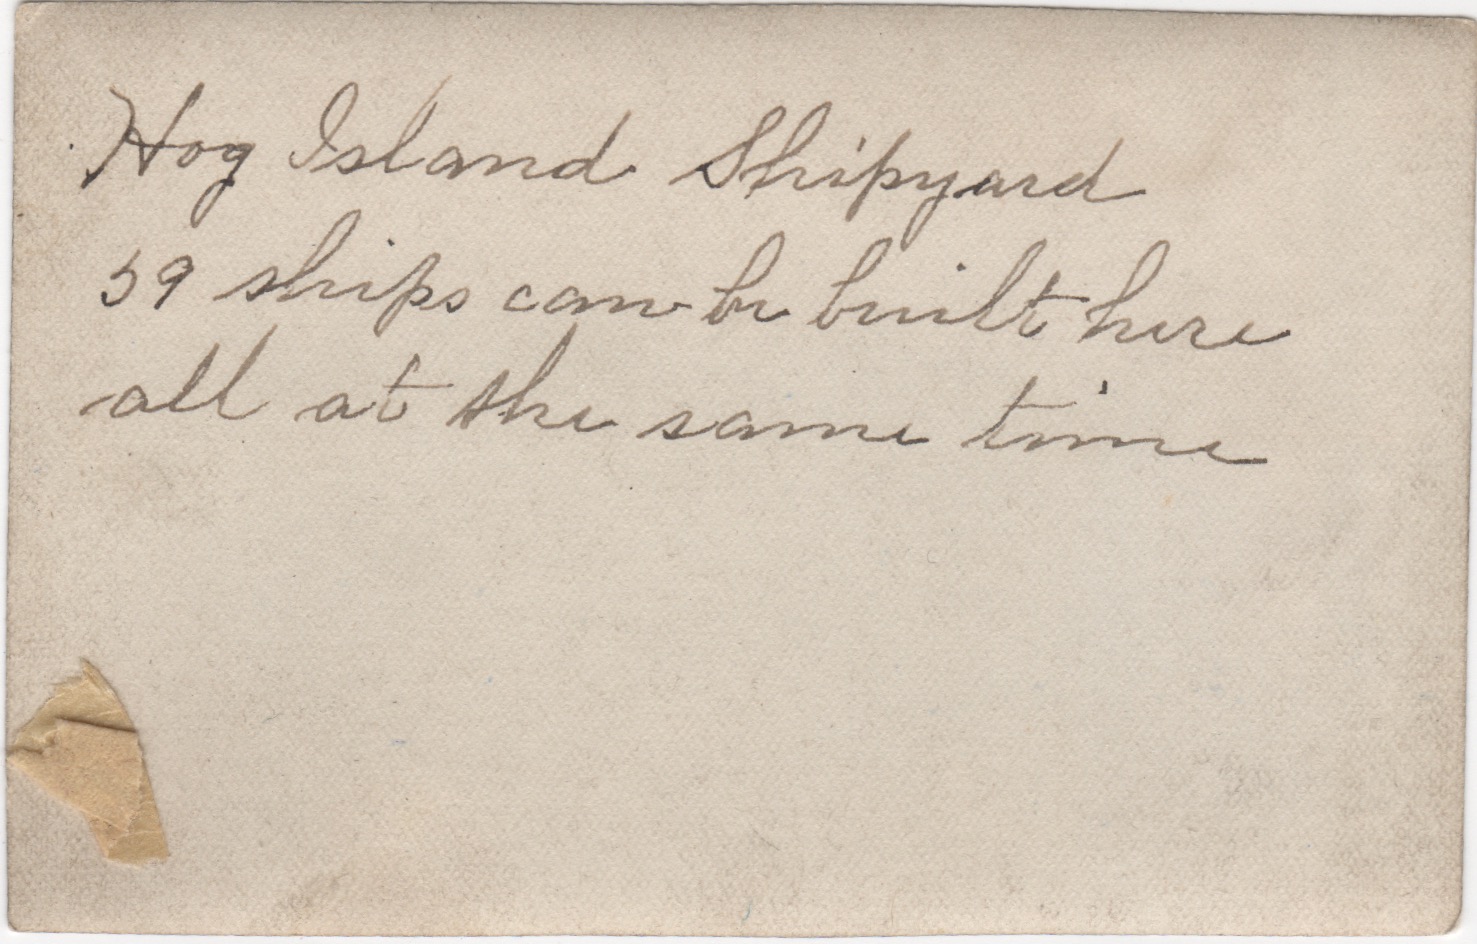 Hog Island Shipyard
59 ships can be built here
all at the same time